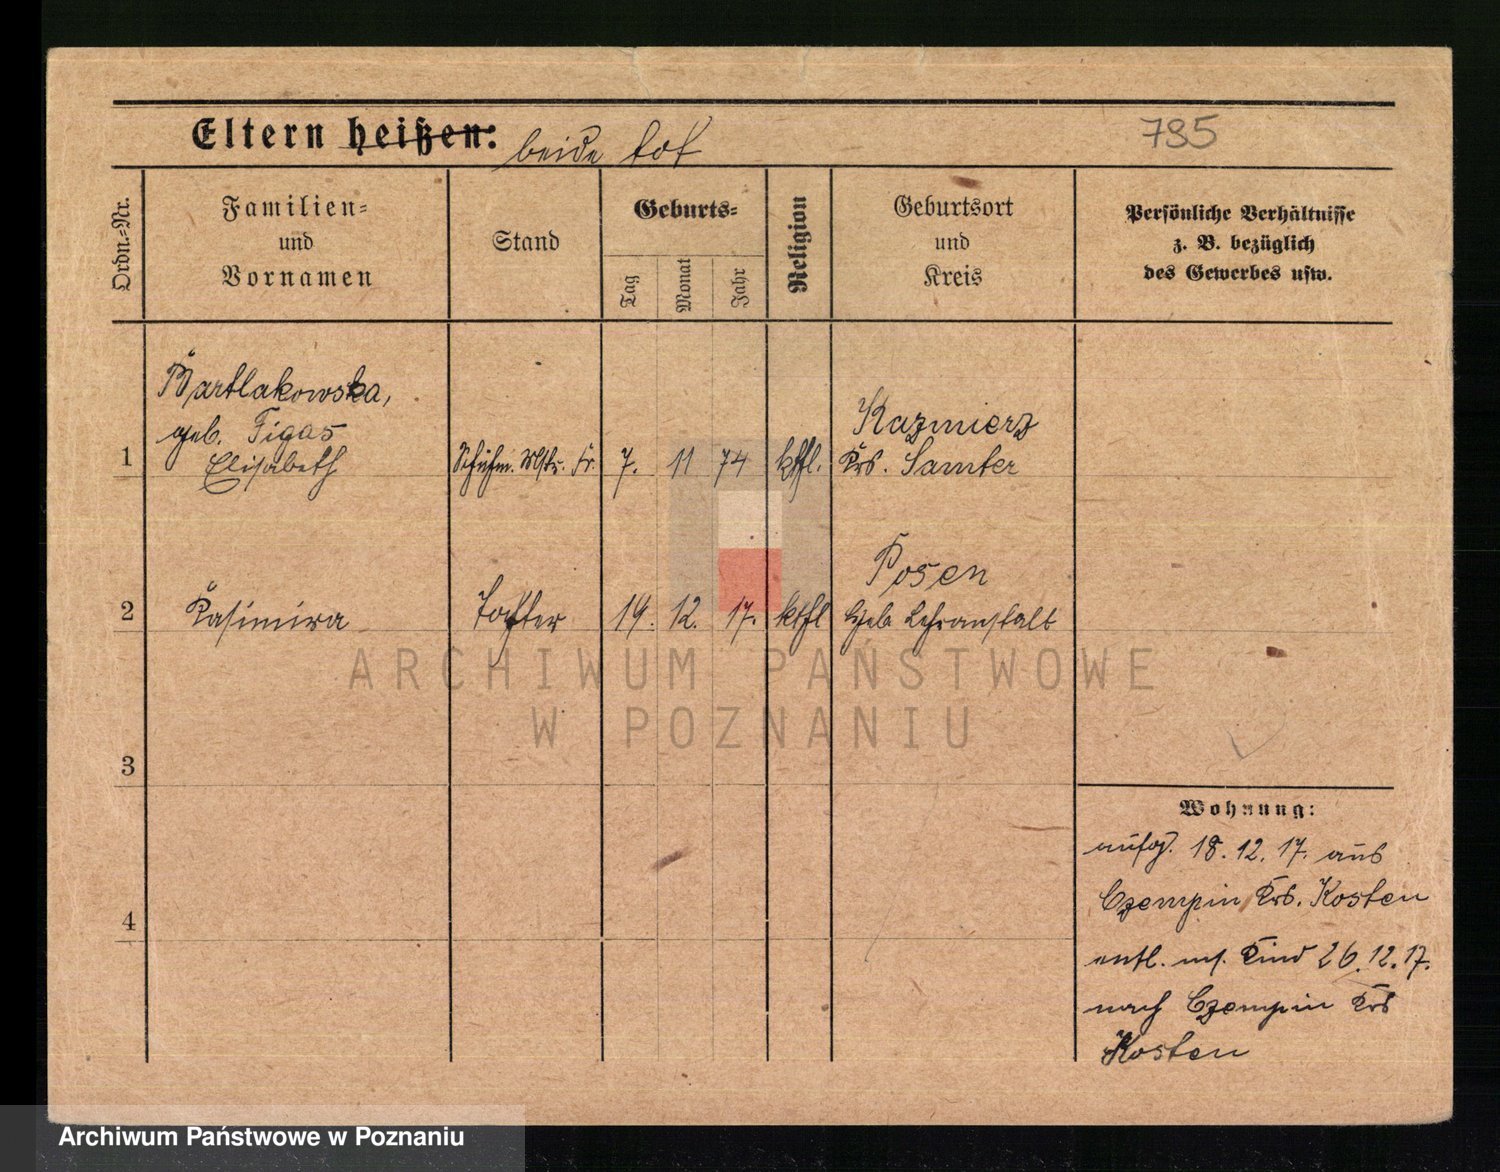 Eltern heißen: beide tot
785
Ordn.-Nr.
Familien-
und
Vornamen
Stand
Geburts-
Tag
Monat
Jahr
Religion
Geburtsort
und
Kreis
Persönliche Verhältnisse
z. B. bezüglich
des Gewerbes usw.
1
Bartlakowska,
geb. Figas
Elisabeth
Schuhm. Mstr. Fr.
7. 11 74
kthl.
Kazmierz
Krs. Samter
2
Kasimira
Tochter
19. 12. 17.
kthl
Posen
Heb Lehranstalt
3
4
Wohnung:
aufg. 18.12.17. aus
Czempin Krs. Kosten
entl. m. Kind 26.12.17.
nach Czempin Krs
Kosten
ARCHIWUM PAŃSTWOWE
W POZNANIU
Archiwum Państwowe w Poznaniu